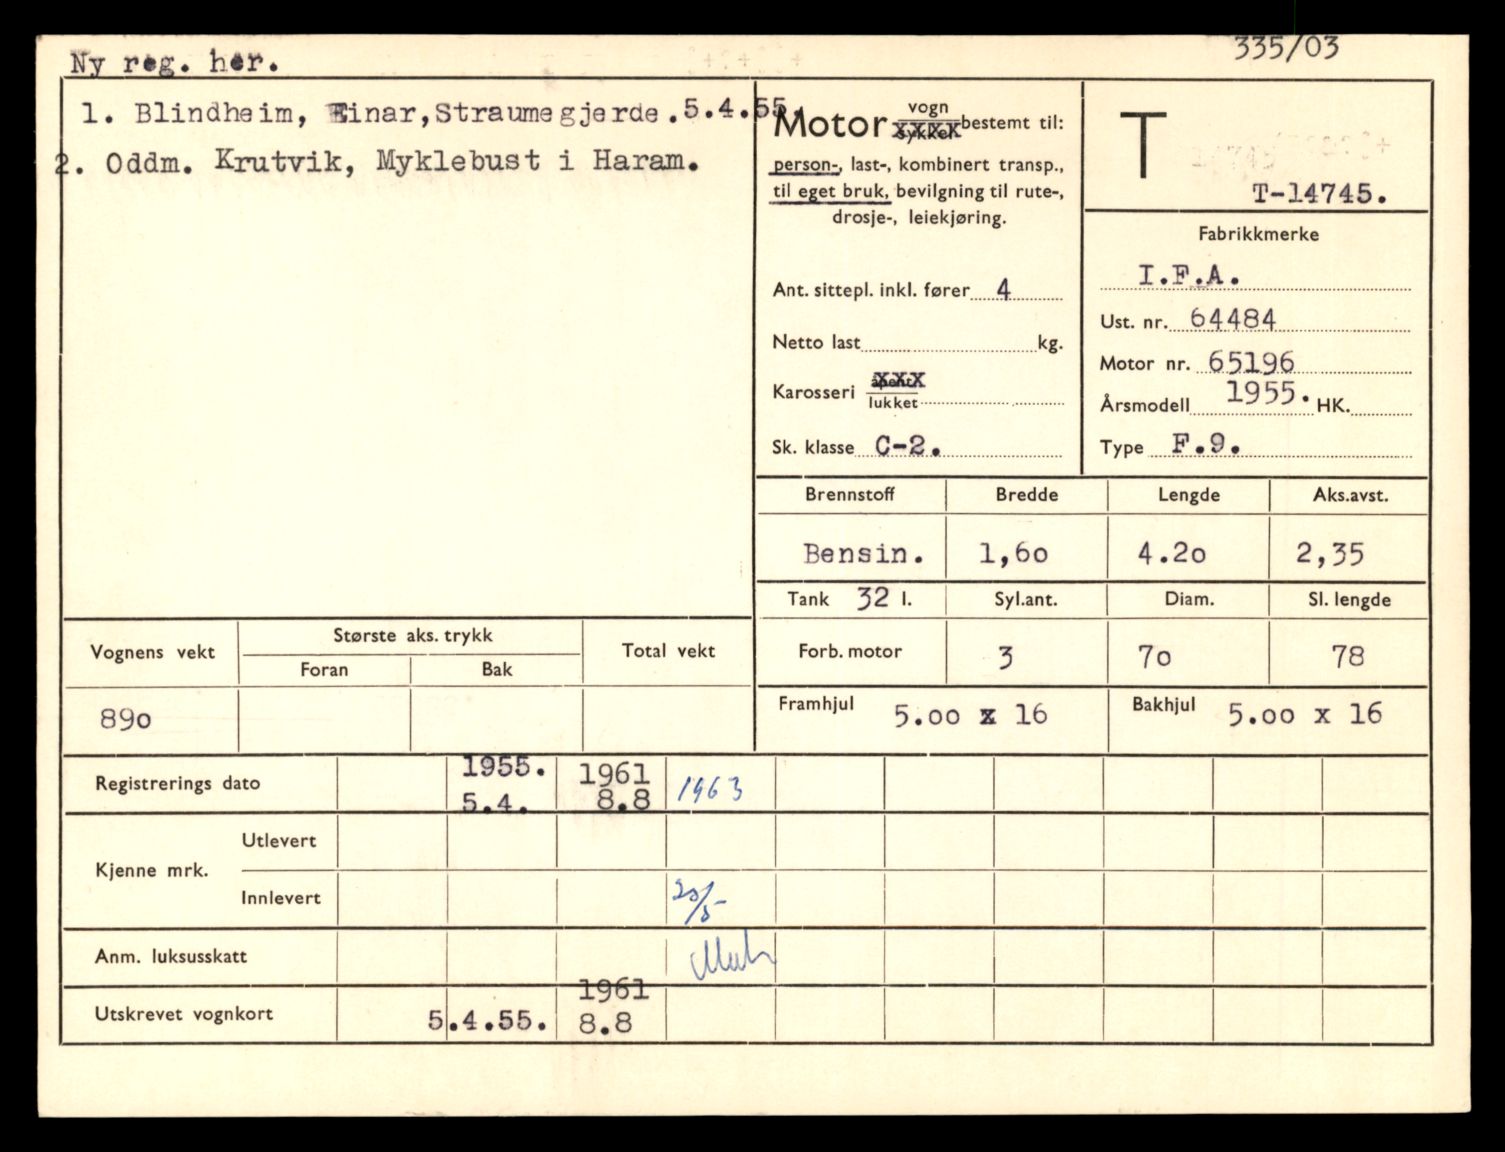 335/03
Ny reg. her.
1. Blindheim, Einar, Straumegjerde. 5.4.55.
2. Oddm. Krutvik, Myklebust i Haram.
Motor vogn sykkel bestemt til:
person-, last-, kombinert transp.,
til eget bruk, bevilgning til rute-,
drosje-, leiekjøring.
Ant. sittepl. inkl. fører 4
Netto last kg.
Karosseri åpent XXX
lukket
Sk. klasse C-2.
T
T-14745.
Fabrikkmerke
I.F.A.
Ust. nr. 64484
Motor nr. 65196
Årsmodell 1955. HK.
Type F.9.
Brennstoff Bredde Lengde Aks.avst.
Bensin. 1,60 4.20 2,35
Tank 32 l. Syl.ant. Diam. Sl. lengde
Forb. motor 3 70 78
Framhjul 5.00 x 16 Bakhjul 5.00 x 16
Vognens vekt Største aks. trykk Total vekt
Foran Bak
890
Registrerings dato 1955. 5.4. 1961 8.8 1963
Kjenne mrk. Utlevert
Innlevert 23/5
Anm. luksusskatt
Utskrevet vognkort 5.4.55. 1961 8.8